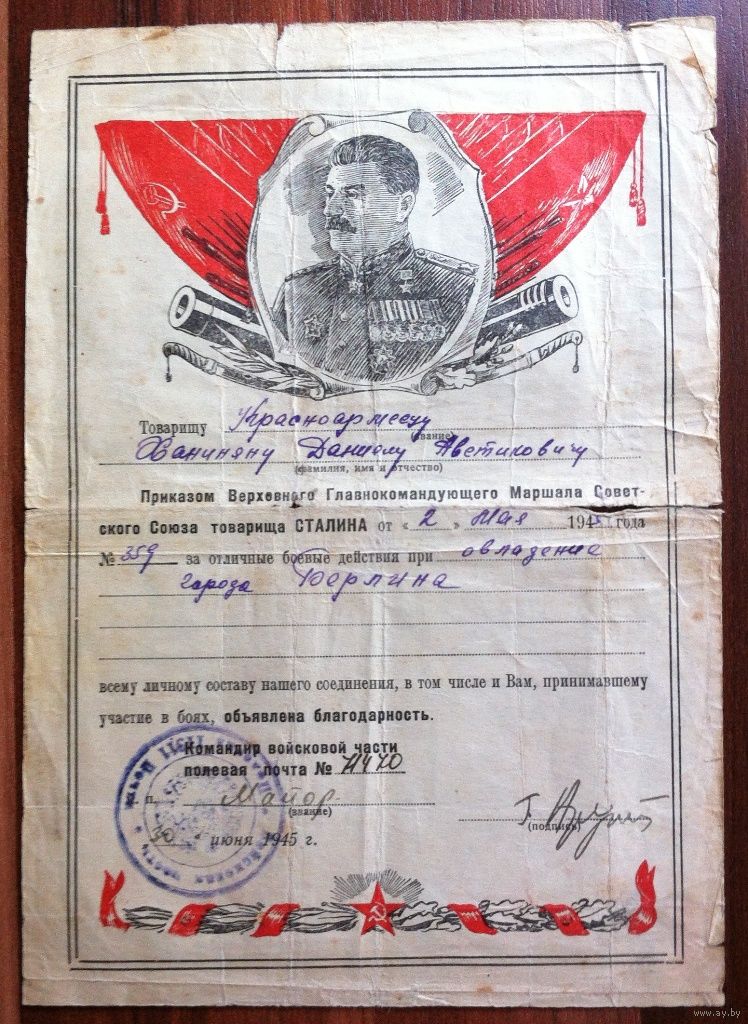 Товарищу Красноармейцу
(звание)
Ханиняну Даниелу Аветиковичу
(фамилия, имя и отчество)
Приказом Верховного Главнокомандующего Маршала Совет-
ского Союза товарища СТАЛИНА от « 2 » Мая 1945 года
№ 359 за отличные боевые действия при овладение
города Берлина
всему личному составу нашего соединения, в том числе и Вам, принимавшему
участие в боях, объявлена благодарность.
Командир войсковой части
полевая почта № 71470
п. Майор
(звание)
(подпись)
30 июня 1945 г.
www.ay.by